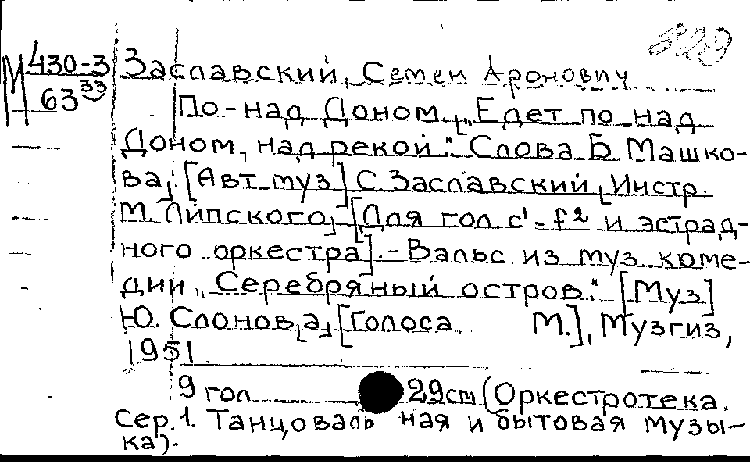 М 430-3 Заславский, Семен Аронович
63 33 По-над Доном. „Едет по над
Доном, над рекой“. Слова Б. Машко-
ва. [Авт. муз] С. Заславский, Инстр.
М. Липского, [Для гол c¹-f² и эстрад-
ного оркестра]. - Вальс из муз. коме-
дии „Серебряный остров“. [Муз]
Ю. Слонов[а], [Голоса. М.], Музгиз,
1951
9 гол 29 cm (Оркестротека.
Сер. 1. Танцоваль ная и бытовая музы-
ка).